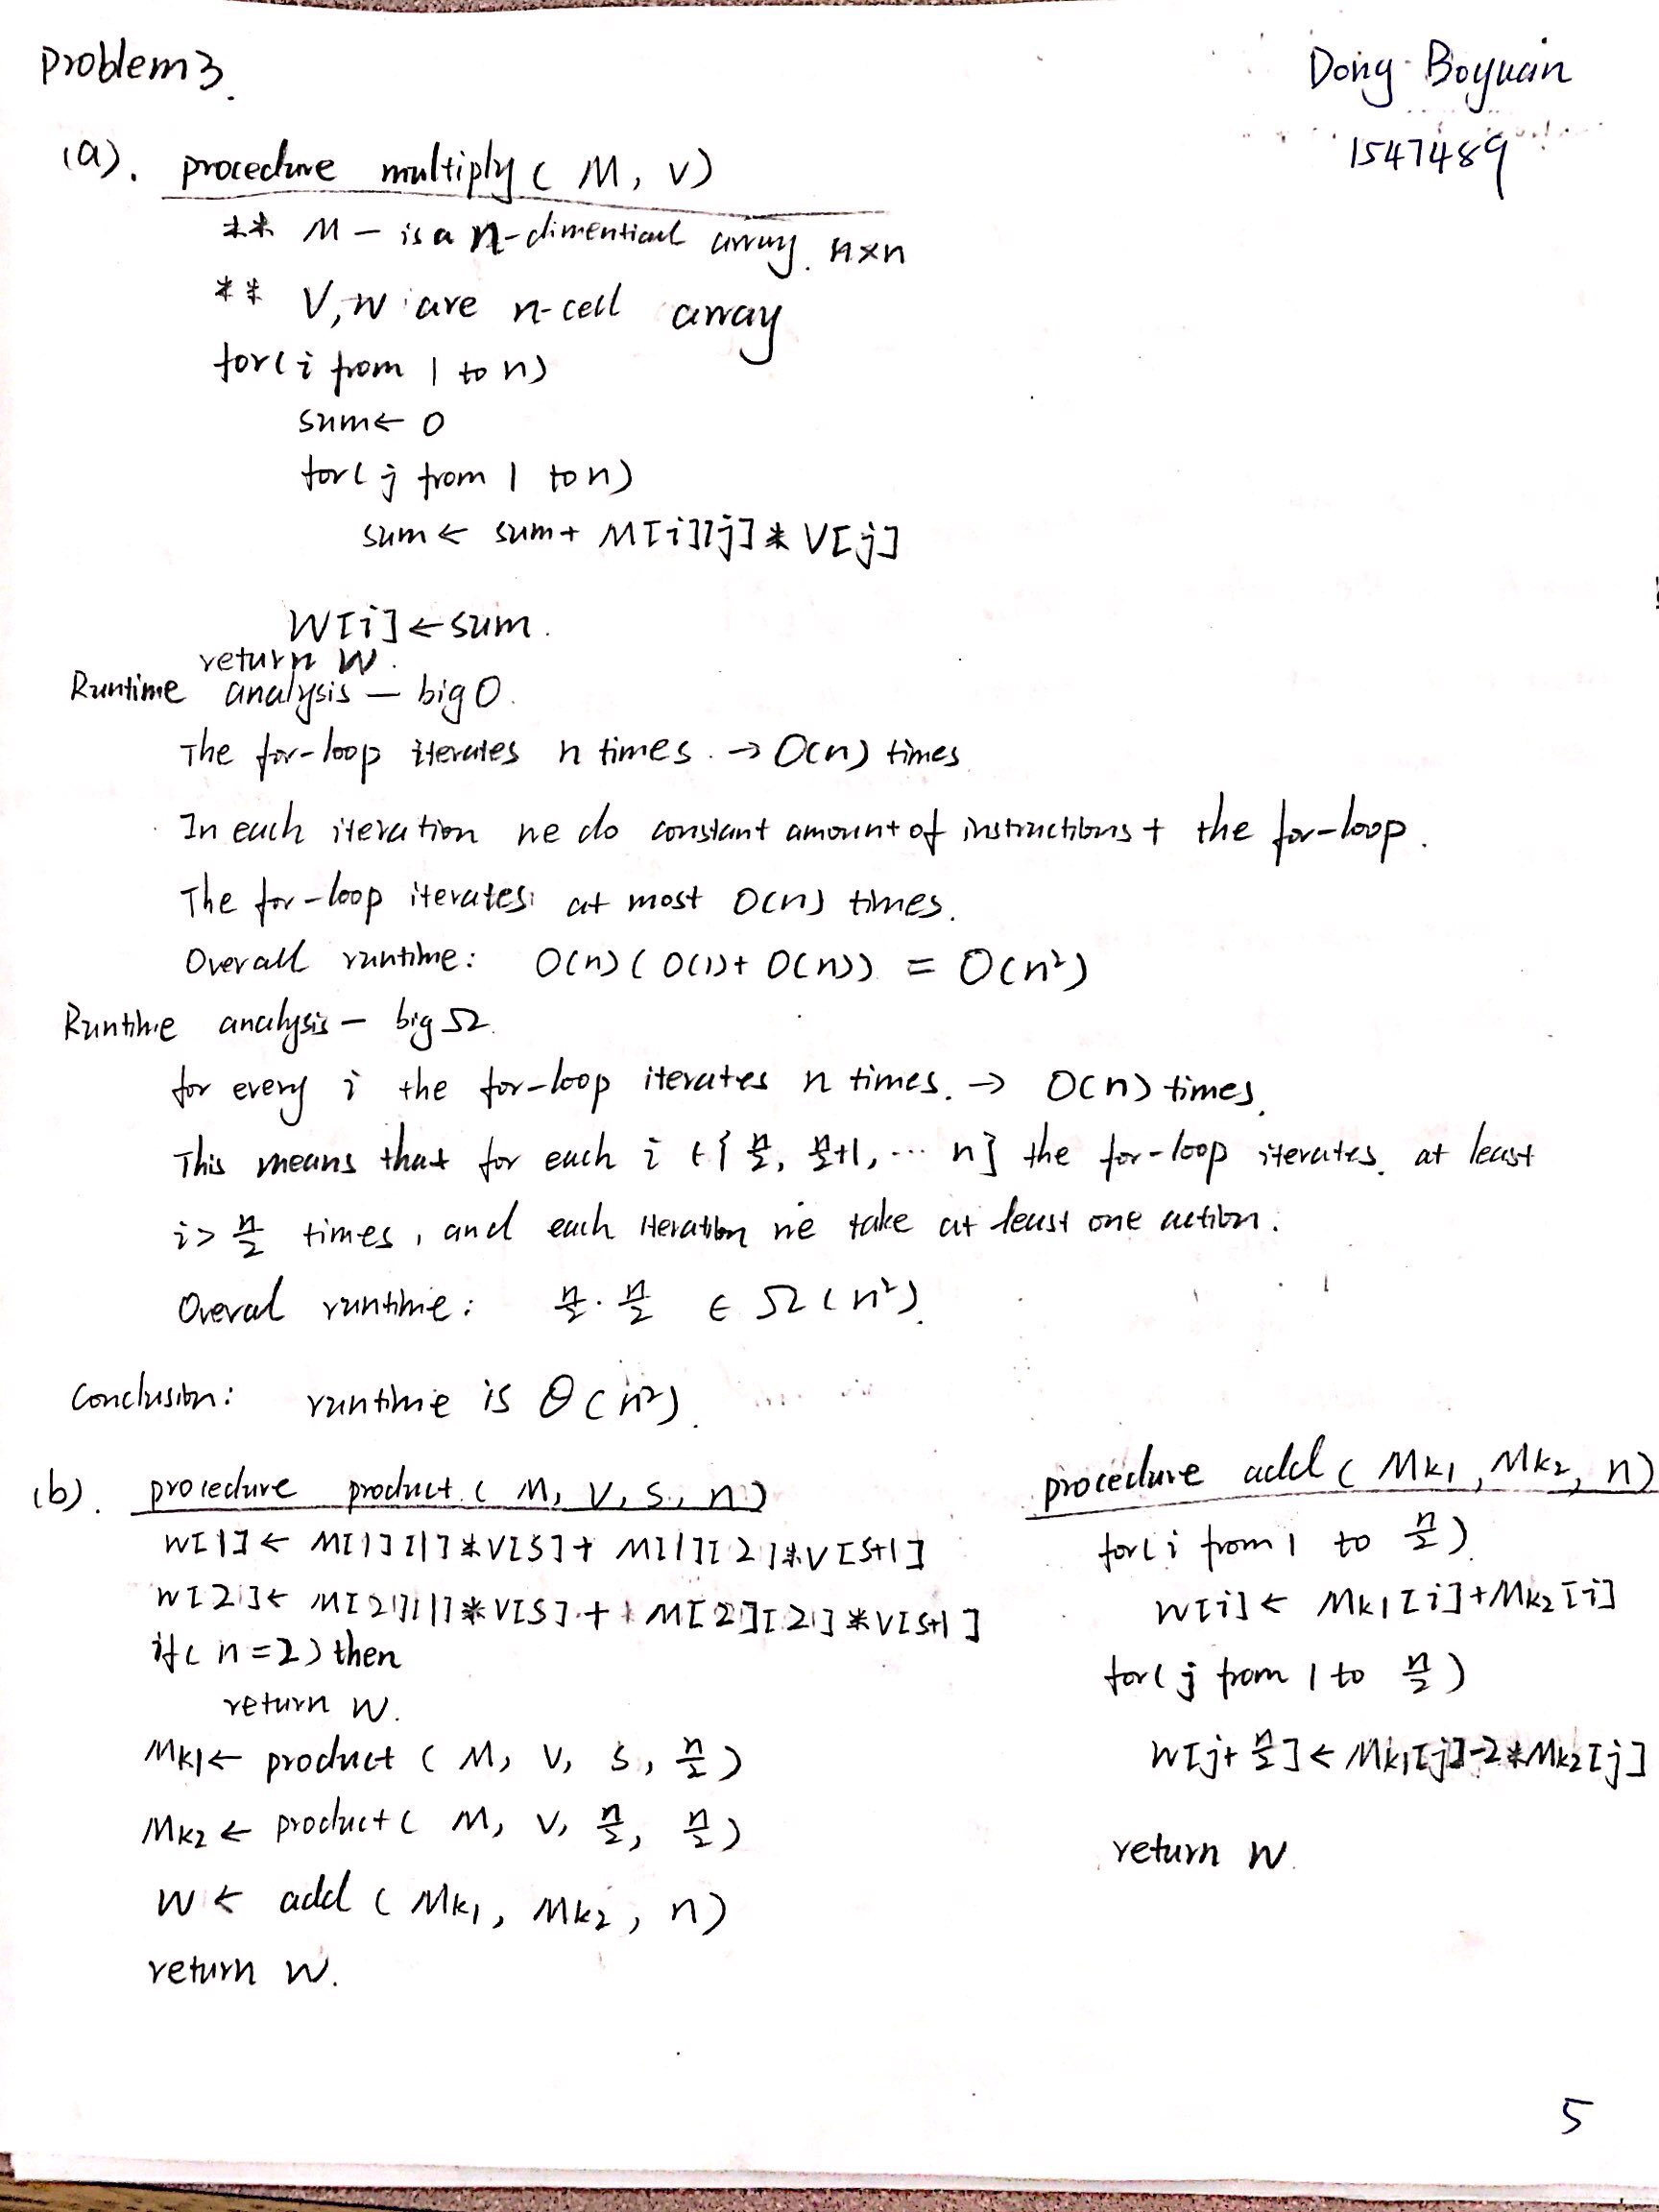 Problem 3.
Dong Boyuan
1547489
(a). procedure multiply ( M, V)
** M — is a n-dimentional array. n×n
** V, W are n-cell array
for( i from 1 to n)
sum ← 0
for( j from 1 to n)
sum ← sum + M[i][j] * V[j]
W[i] ← sum.
return W.
Runtime analysis — big O.
The for-loop iterates n times. → O(n) times
In each iteration we do constant amount of instructions + the for-loop.
The for-loop iterates at most O(n) times.
Overall runtime: O(n) ( O(1) + O(n)) = O(n²)
Runtime analysis — big Ω.
for every i the for-loop iterates n times. → O(n) times.
This means that for each i ∈ { n/2, n/2+1, ... n} the for-loop iterates at least
i > n/2 times, and each iteration we take at least one action.
Overal runtime: n/2 · n/2 ∈ Ω(n²).
Conclusion: runtime is Θ(n²).
(b). procedure product ( M, V, S, n)
W[1] ← M[1][1] * V[S] + M[1][2] * V[S+1]
W[2] ← M[2][1] * V[S] + M[2][2] * V[S+1]
if( n=2) then
return W.
Mk1 ← product ( M, V, S, n/2)
Mk2 ← product ( M, V, n/2, n/2)
W ← add ( Mk1, Mk2, n)
return W.
procedure add ( Mk1, Mk2, n)
for( i from 1 to n/2)
W[i] ← Mk1[i] + Mk2[i]
for( j from 1 to n/2)
W[j+ n/2] ← Mk1[j] - 2 * Mk2[j]
return W.
5